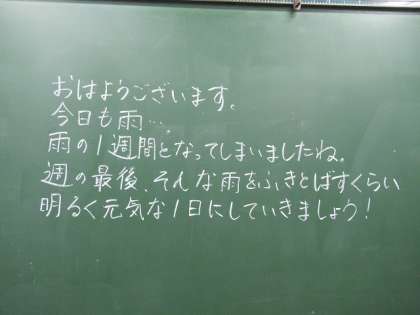 おはようございます。
今日も雨…
雨の1週間となってしまいましたね。
週の最後、そんな雨をふきとばすくらい
明るく元気な1日にしていきましょう!